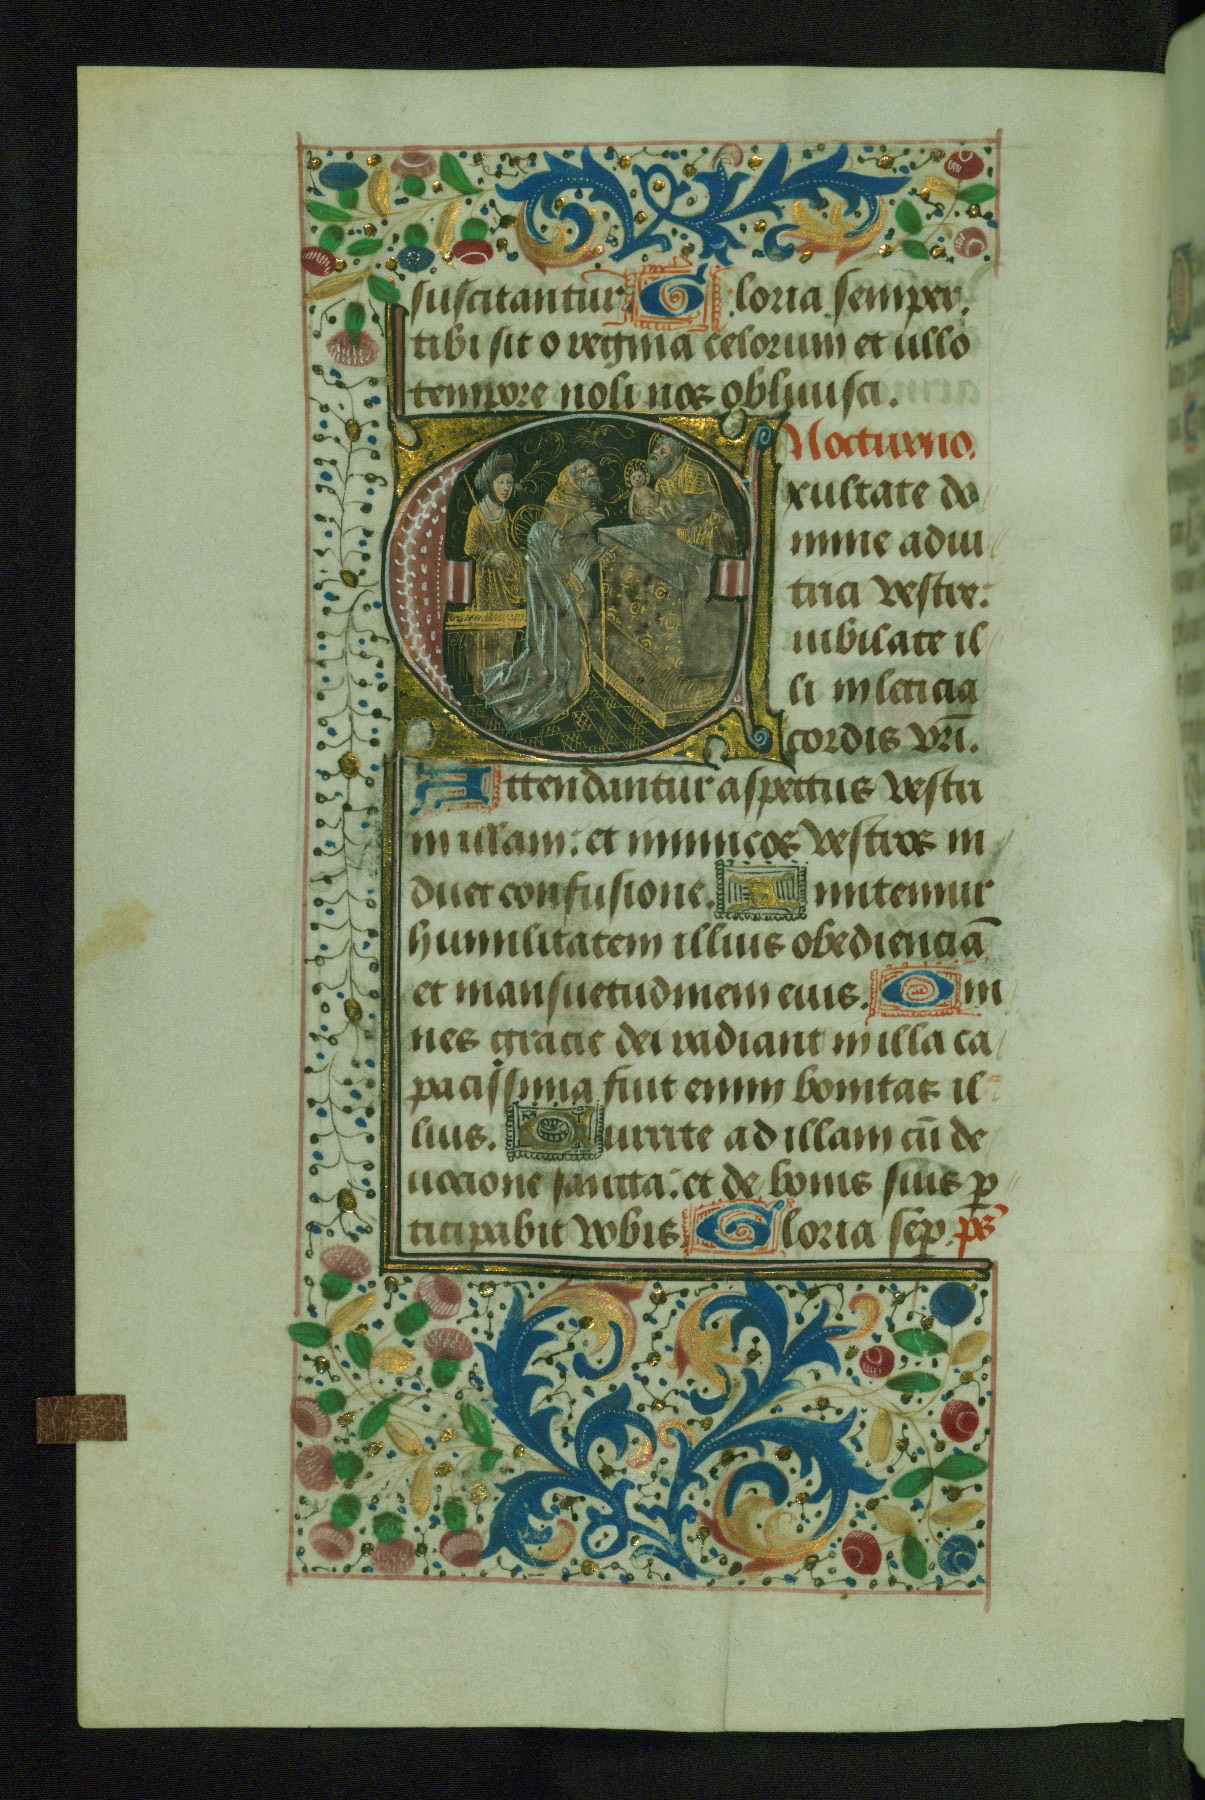 suscitantur. Gloria semper.
tibi sit o regina celorum et ullo
tempore noli nos obliuisci.
Nocturno.
Exultate do
mine adiu
trici vestre:
iubilate il
li in leticia
cordis vr̄i.
Attendantur aspectus vestri
in illam: et inimicos vestros in
duet confusione. Imitemur
humilitatem illius obedienciā
et mansuetudinem eius. Om
nes gracie dei radiant in illa ca
pacissima fuit enim bonitas il
lius. Currite ad illam cū de
uocione sancta: et de bonis suis ꝑ
ticipabit vobis. Gloria seꝑ. ps̄